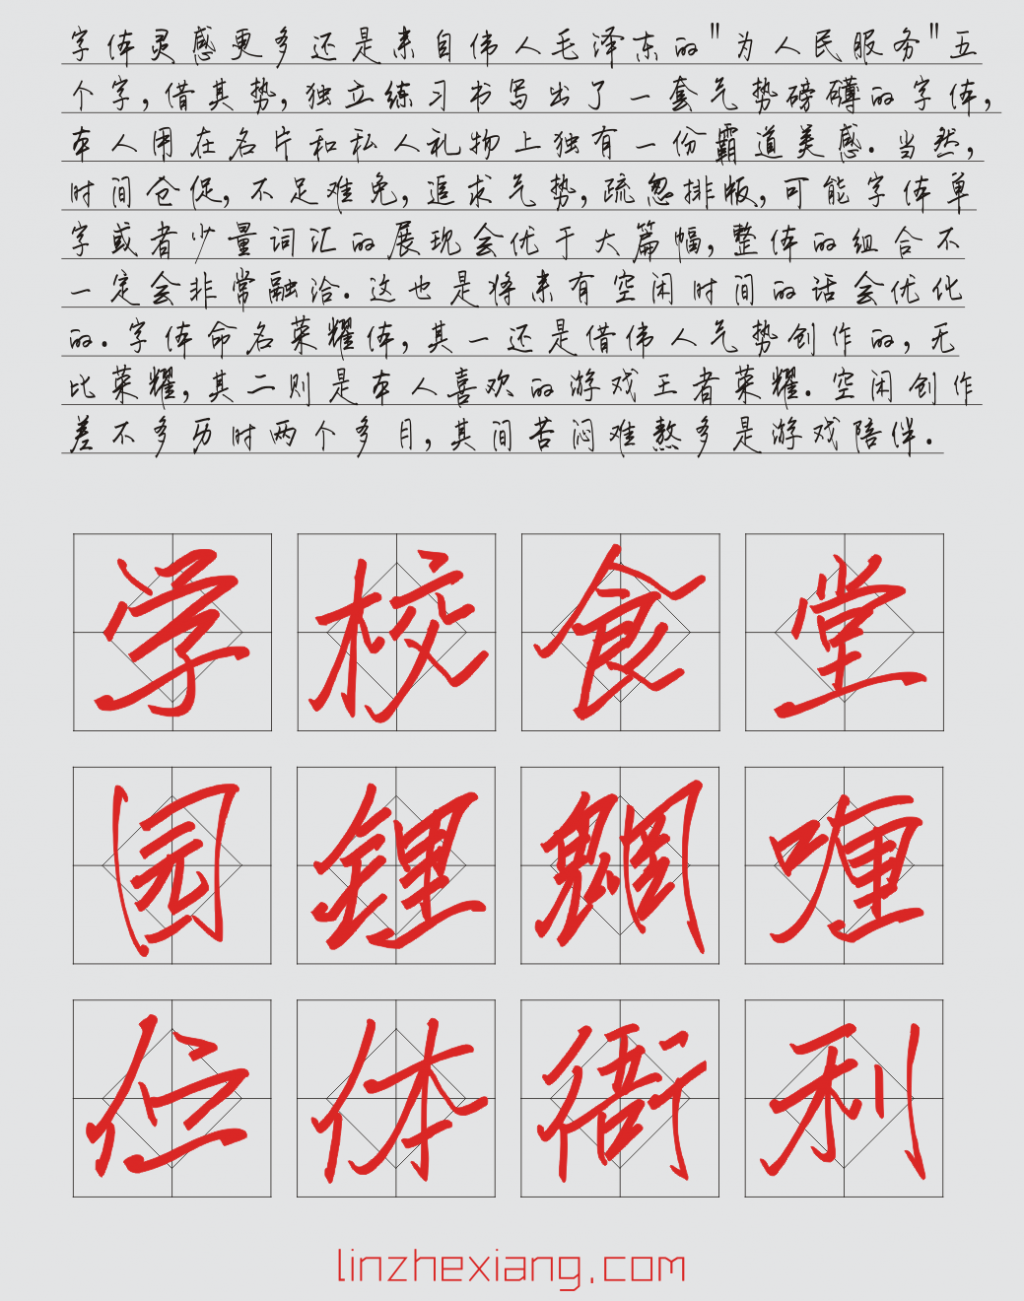 字体灵感更多还是来自伟人毛泽东的"为人民服务"五
个字,借其势,独立练习书写出了一套气势磅礴的字体,
本人用在名片和私人礼物上独有一份霸道美感.当然,
时间仓促,不足难免,追求气势,疏忽排版,可能字体单
字或者少量词汇的展现会优于大篇幅,整体的组合不
一定会非常融洽.这也是将来有空闲时间的话会优化
的.字体命名荣耀体,其一还是借伟人气势创作的,无
比荣耀,其二则是本人喜欢的游戏王者荣耀.空闲创作
差不多历时两个多月,其间苦闷难熬多是游戏陪伴.
学校食堂
园锂鹏喱
位体衙利
linzhexiang.com